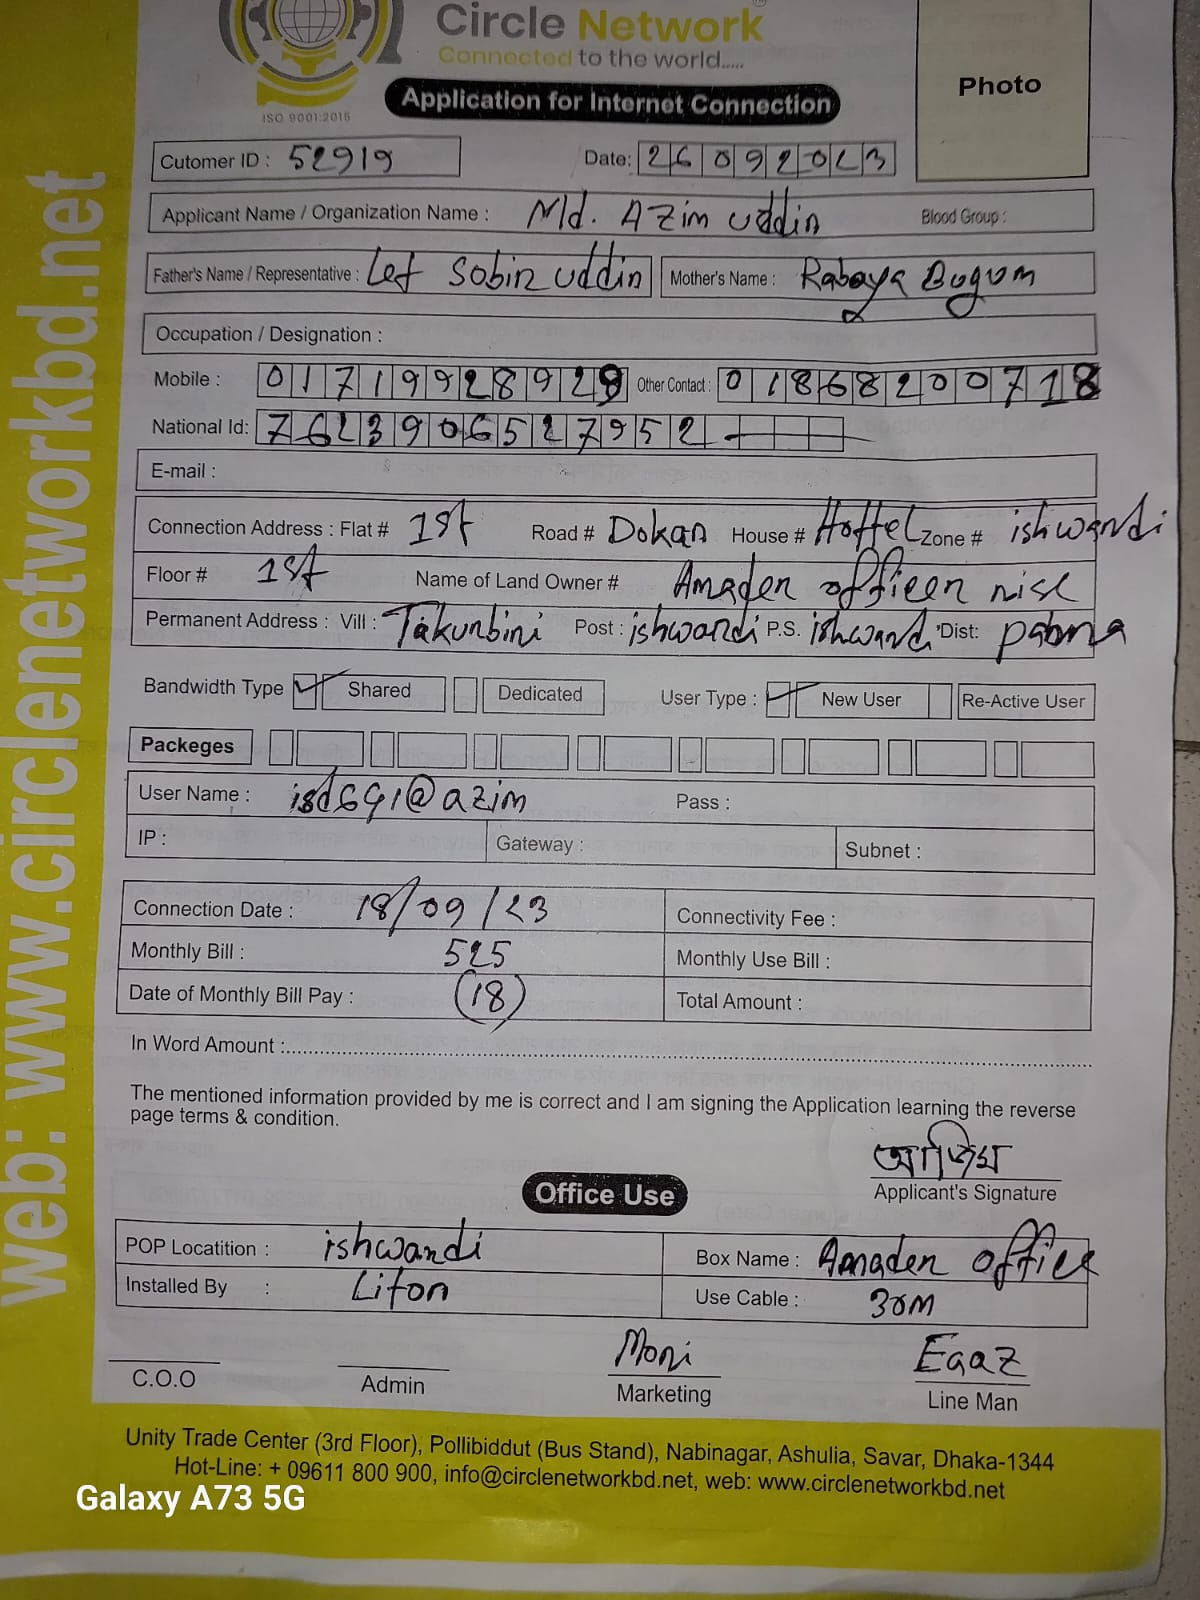 Circle Network
Connected to the world.....
ISO 9001:2015
Application for Internet Connection
Photo
Cutomer ID : 52919
Date: 26092023
Applicant Name / Organization Name : Md. Azim uddin Blood Group :
Father's Name / Representative : Let Sobir uddin Mother's Name : Rabaya Bugum
Occupation / Designation :
Mobile : 01719928929 Other Contact : 01868200718
National Id: 7623906527952
E-mail :
Connection Address : Flat # 1st Road # Dokan House # Hottel Zone # ishwardi
Floor # 1st Name of Land Owner # Amader officer nise
Permanent Address : Vill : Takurbini Post : ishwardi P.S. ishwardi Dist: pabna
Bandwidth Type Shared Dedicated User Type : New User Re-Active User
Packeges
User Name : isd691@azim Pass :
IP : Gateway : Subnet :
Connection Date : 18/09/23 Connectivity Fee :
Monthly Bill : 525 Monthly Use Bill :
Date of Monthly Bill Pay : (18) Total Amount :
In Word Amount :......................
The mentioned information provided by me is correct and I am signing the Application learning the reverse
page terms & condition.
আজিম
Applicant's Signature
Office Use
POP Locatition : ishwardi Box Name : Amader office
Installed By : Liton Use Cable : 30M
Moni Egaz
C.O.O Admin Marketing Line Man
Unity Trade Center (3rd Floor), Pollibiddut (Bus Stand), Nabinagar, Ashulia, Savar, Dhaka-1344
Hot-Line: + 09611 800 900, info@circlenetworkbd.net, web: www.circlenetworkbd.net
Galaxy A73 5G
web: www.circlenetworkbd.net